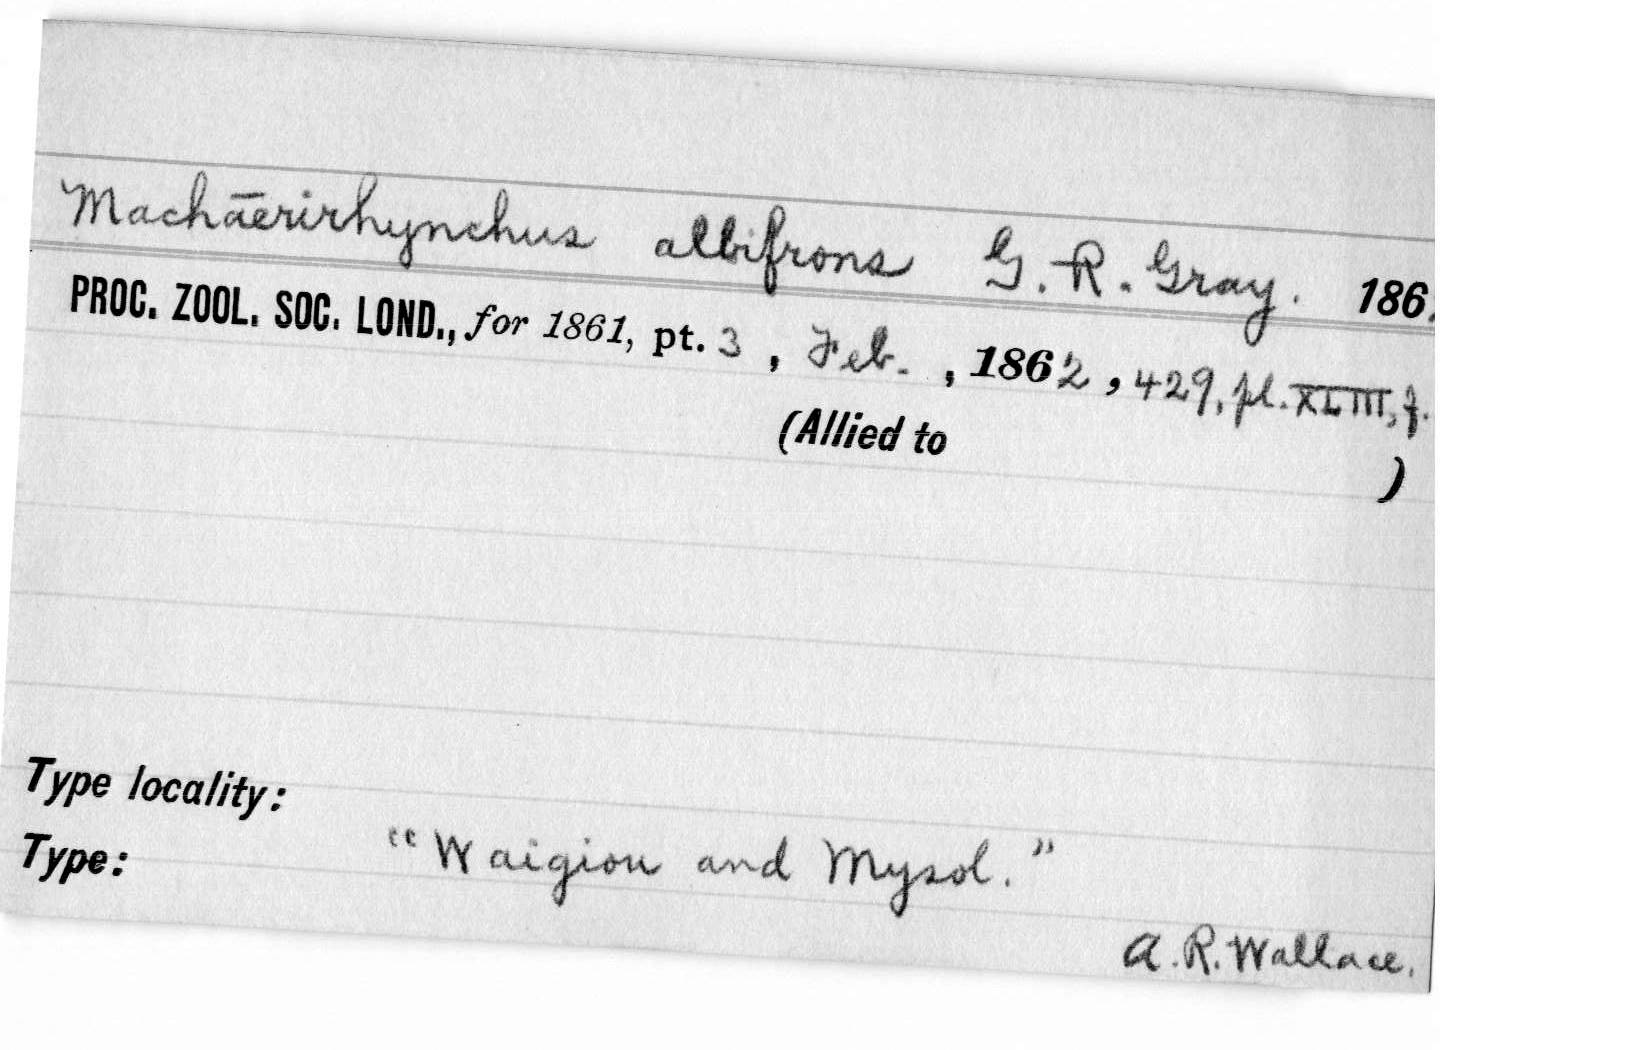 Machāerirhynchus albifrons G. R. Gray. 186
PROC. ZOOL. SOC. LOND., for 1861, pt. 3, Feb., 1862, 429, pl. XLIII, f.
(Allied to )
Type locality:
Type: "Waigiou and Mysol."
A. R. Wallace.